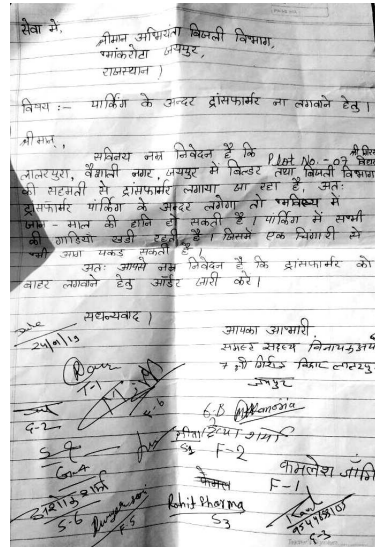 सेवा में,
श्रीमान अभियंता बिजली विभाग,
भांकरोटा जयपुर,
राजस्थान )
विषय :- पार्किंग के अन्दर ट्रांसफार्मर ना लगवाने हेतु ।
श्रीमान्,
सविनय नम्र निवेदन है कि Plot No.-07
लालरपुरा, वैशाली नगर, जयपुर में बिल्डर तथा बिजली विभाग
की सहमती से ट्रांसफार्मर लगाया जा रहा है, अतः
ट्रांसफार्मर पार्किंग के अन्दर लगेगा तो भविष्य में
जान - माल की हानि हो सकती है । पार्किंग में सभी
की गाडियां खडी रहती है । जिसमे एक चिंगारी से
भी आग पकड सकती है ,
अतः आपसे नम्र निवेदन है कि ट्रांसफार्मर को
बाहर लगवाने हेतु ऑर्डर जारी करे ।
सधन्यवाद )
आपका आभारी,
समस्त सदस्य विनायक
7 श्री विहार लालरपु
जयपुर
T-1
G-2
G-6
6-B
शर्मा
S2 F-2
G-4
कमलेश
F-1
S-6
F-5
Rohit Sharma
S3
G-3